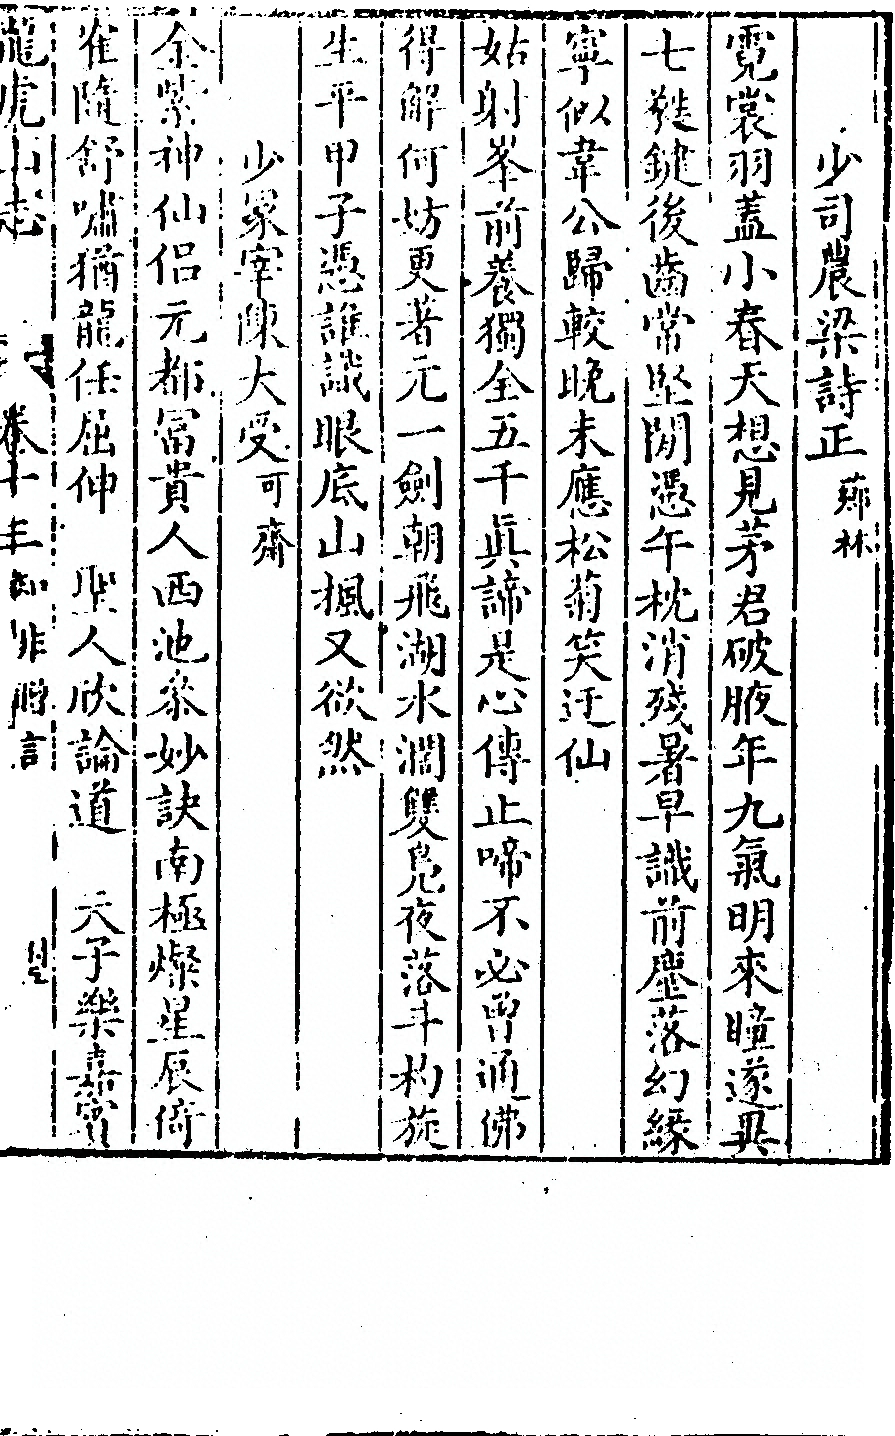 少司農梁詩正 薌林
霓裳羽蓋小春天想見茅君破腋年九氣明來瞳遂異
七蕤鍵後齒常堅閒憑午枕消殘暑早識前塵落幻緣
寧似韋公歸較晚未應松菊笑迂仙
姑射峯前養獨全五千眞諦是心傳止啼不必曾通佛
得解何妨更著元一劍朝飛湖水濶雙鳧夜落斗杓旋
生平甲子憑誰識眼底山楓又欲然
少冢宰陳大受 可齋
金紫神仙侶元都富貴人西池叅妙訣南極燦星辰倚
崔隨舒嘯猶龍任屈伸 聖人欣論道 天子樂嘉賓
龍虎山志 卷十